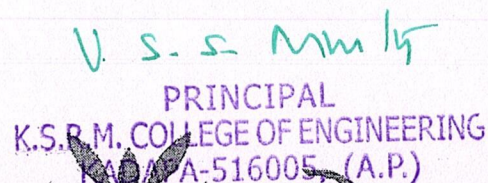 V. S. S. Murthy
PRINCIPAL
K.S.R.M. COLLEGE OF ENGINEERING
KADAPA-516005, (A.P.)